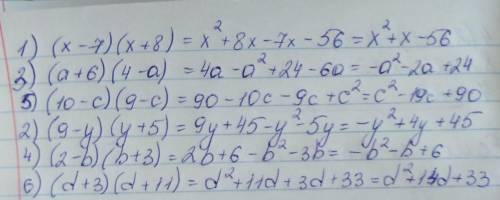 1) (x-7)(x+8) = x²+8x-7x-56 = x²+x-56
3) (a+6)(4-a) = 4a-a²+24-6a = -a²-2a+24
5) (10-c)(9-c) = 90-10c-9c+c² = c²-19c+90
2) (9-y)(y+5) = 9y+45-y²-5y = -y²+4y+45
4) (2-b)(b+3) = 2b+6-b²-3b = -b²-b+6
6) (d+3)(d+11) = d²+11d+3d+33 = d²+14d+33